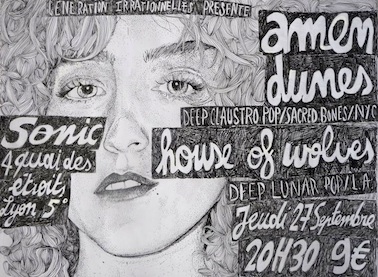 GENERATION IRRATIONNELLES PRESENTE
amen
dunes
DEEP CLAUSTRO POP/SACRED BONES/NYC
Sonic
4 quai des
etroits
Lyon 5°
house of wolves
DEEP LUNAR POP/L.A.
Jeudi 27 Septembre
20H30 9€